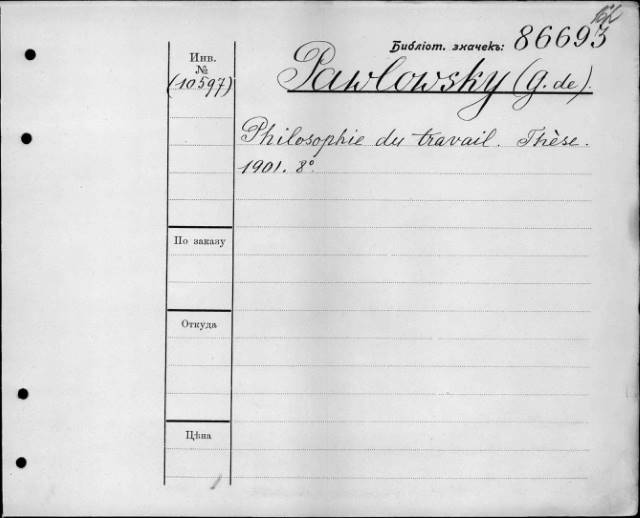 Библіот. значекъ: 86693
Инв.
№
(10597)
Pawlowsky (G. de).
Philosophie du travail. Thèse.
1901. 8°.
По заказу
Откуда
Цѣна